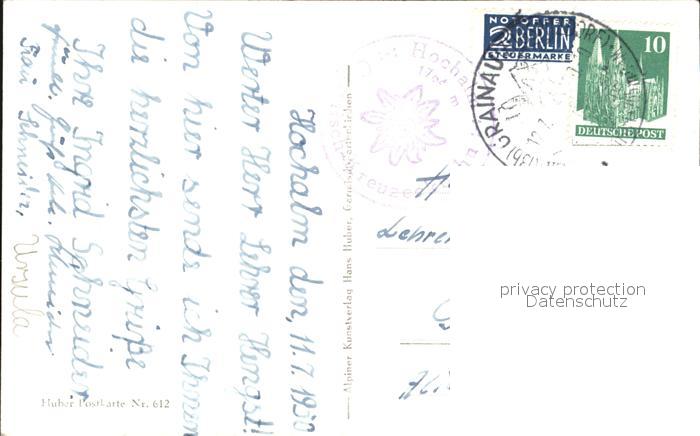 Hochalm den, 11.7.1950
Werter Herr Lehrer Hengst!
Von hier sende ich Ihnen
die herzlichsten Grüße
Ihre Ingrid Schneider
Frau Schneider,
Ursula
Huber Postkarte Nr. 612
Alpiner Kunstverlag Hans Huber, Garmisch-Partenkirchen
Hochalm
Kreuzeck
NOTOPFER
2 BERLIN
STEUERMARKE
GRAINAU
10
DEUTSCHE POST
Lehrer
privacy protection
Datenschutz